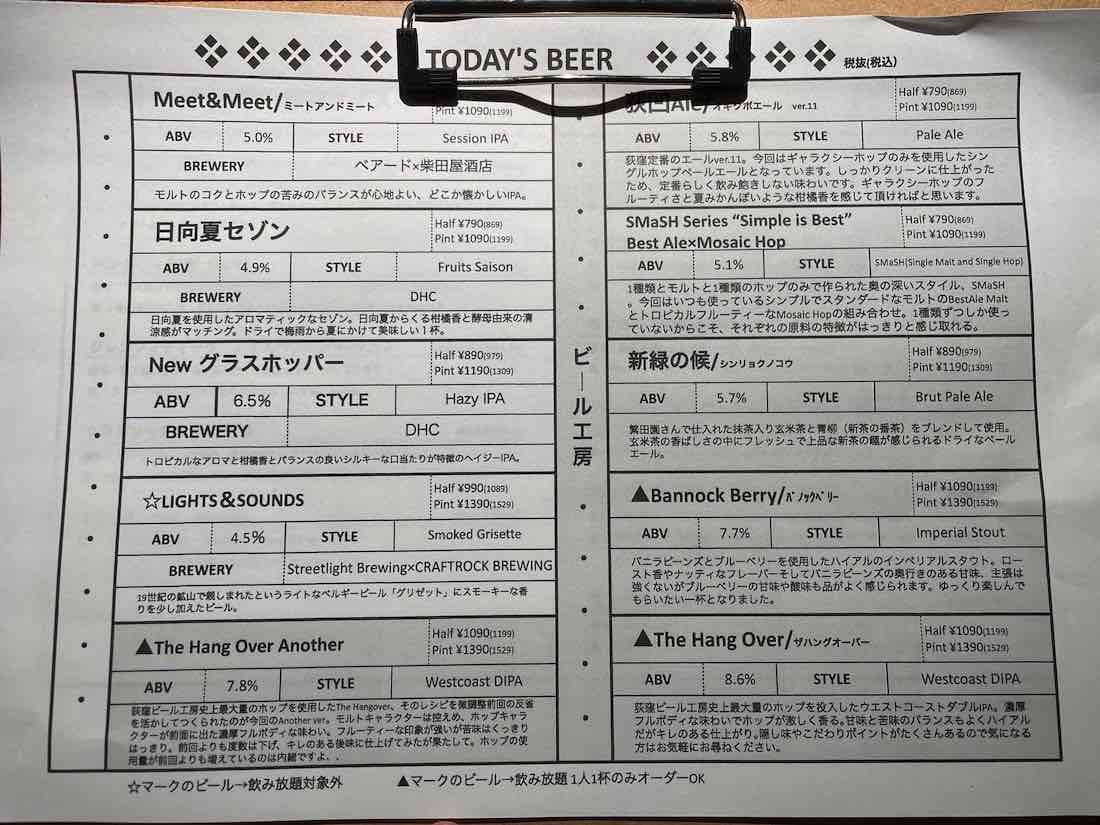 TODAY'S BEER
税抜(税込)
Meet&Meet/ミートアンドミート
Pint ¥1090(1199)
ABV 5.0% STYLE Session IPA
BREWERY ベアード×柴田屋酒店
モルトのコクとホップの苦みのバランスが心地よい、どこか懐かしいIPA。
日向夏セゾン
Half ¥790(869)
Pint ¥1090(1199)
ABV 4.9% STYLE Fruits Saison
BREWERY DHC
日向夏を使用したアロマティックなセゾン。日向夏からくる柑橘香と酵母由来の清
涼感がマッチング。ドライで梅雨から夏にかけて美味しい1杯。
New グラスホッパー
Half ¥890(979)
Pint ¥1190(1309)
ABV 6.5% STYLE Hazy IPA
BREWERY DHC
トロピカルなアロマと柑橘香とバランスの良いシルキーな口当たりが特徴のヘイジーIPA。
☆LIGHTS&SOUNDS
Half ¥990(1089)
Pint ¥1390(1529)
ABV 4.5% STYLE Smoked Grisette
BREWERY Streetlight Brewing×CRAFTROCK BREWING
19世紀の鉱山で親しまれたというライトなベルギービール「グリゼット」にスモーキーな香
りを少し加えたビール。
▲The Hang Over Another
Half ¥1090(1199)
Pint ¥1390(1529)
ABV 7.8% STYLE Westcoast DIPA
荻窪ビール工房史上最大量のホップを使用したThe Hangover、そのレシピを微調整前回の反省
を活かしてつくられたのが今回のAnother ver。モルトキャラクターは控えめ、ホップキャラ
クターが前面に出た濃厚フルボディな味わい。フルーティーな印象が強いが苦味はくっきり
はっきり。前回よりも度数は下げ、キレのある後味に仕上げてみたが果たして。ホップの使
用量が前回よりも増えているのは内緒ですよ、.
ビール工房
荻窪Ale/オギクボエール ver.11
Half ¥790(869)
Pint ¥1090(1199)
ABV 5.8% STYLE Pale Ale
荻窪定番のエールver.11。今回はギャラクシーホップのみを使用したシン
グルホップペールエールとなっています。しっかりクリーンに仕上がった
ため、定番らしく飲み飽きしない味わいです。ギャラクシーホップのフ
ルーティさと夏みかんぽいような柑橘香を感じて頂ければと思います。
SMaSH Series “Simple is Best”
Best Ale×Mosaic Hop
Half ¥790(869)
Pint ¥1090(1199)
ABV 5.1% STYLE SMaSH(Single Malt and Single Hop)
1種類とモルトと1種類のホップのみで作られた奥の深いスタイル、SMaSH
。今回はいつも使っているシンプルでスタンダードなモルトのBestAle Malt
とトロピカルフルーティーなMosaic Hopの組み合わせ。1種類ずつしか使っ
ていないからこそ、それぞれの原料の特徴がはっきりと感じ取れる。
新緑の候/シンリョクノコウ
Half ¥890(979)
Pint ¥1190(1309)
ABV 5.7% STYLE Brut Pale Ale
繁田園さんで仕入れた抹茶入り玄米茶と青柳（新茶の番茶）をブレンドして使用。
玄米茶の香ばしさの中にフレッシュで上品な新茶の薫が感じられるドライなペール
エール。
▲Bannock Berry/バノックベリー
Half ¥1090(1199)
Pint ¥1390(1529)
ABV 7.7% STYLE Imperial Stout
バニラビーンズとブルーベリーを使用したハイアルのインペリアルスタウト。ロー
スト香やナッティなフレーバーそしてバニラビーンズの奥行きのある甘味、主張は
強くないがブルーベリーの甘味や酸味も品がよく感じられます。ゆっくり楽しんで
もらいたい一杯となりました。
▲The Hang Over/ザハングオーバー
Half ¥1090(1199)
Pint ¥1390(1529)
ABV 8.6% STYLE Westcoast DIPA
荻窪ビール工房史上最大量のホップを投入したウエストコーストダブルIPA。濃厚
フルボディな味わいでホップが激しく香る。甘味と苦味のバランスもよくハイアル
だがキレのある仕上がり。隠し味やこだわりポイントがたくさんあるので気になる
方はお気軽にお尋ねください。
☆マークのビール→飲み放題対象外
▲マークのビール→飲み放題 1人1杯のみオーダーOK